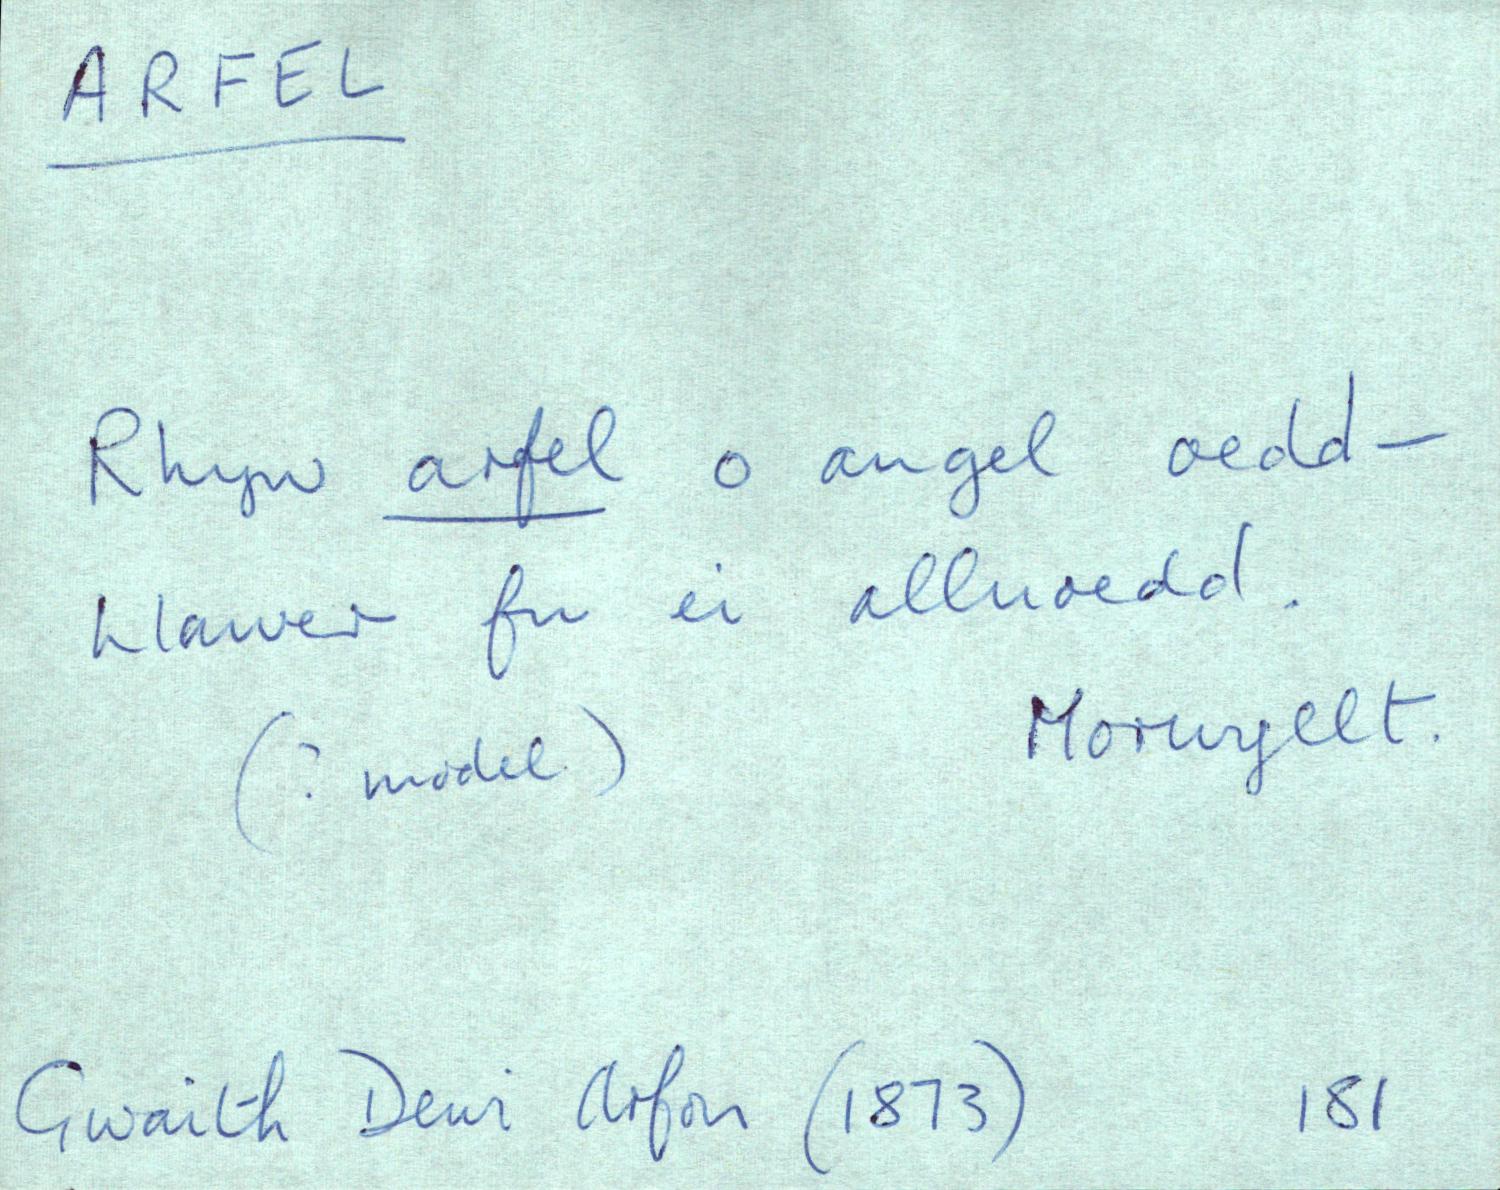 ARFEL
Rhyw arfel o angel oedd —
hlawer fu ei alluoedd.
Morwyllt.
(? model)
Gwaith Dewi Arfon (1873) 181